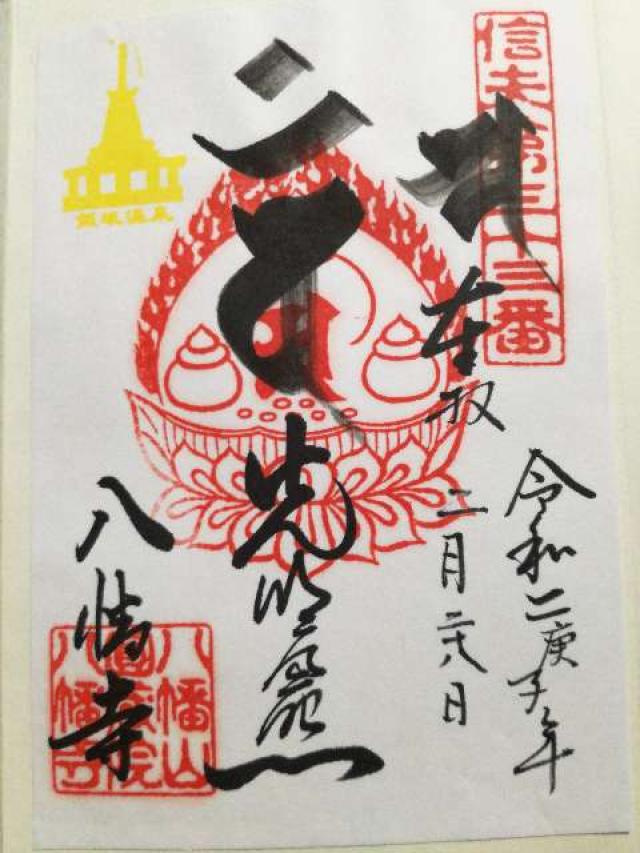 信夫第三十三番
奉拝
令和二庚子年
二月二八日
光明
八幡寺
飯坂温泉
八幡山
八幡寺